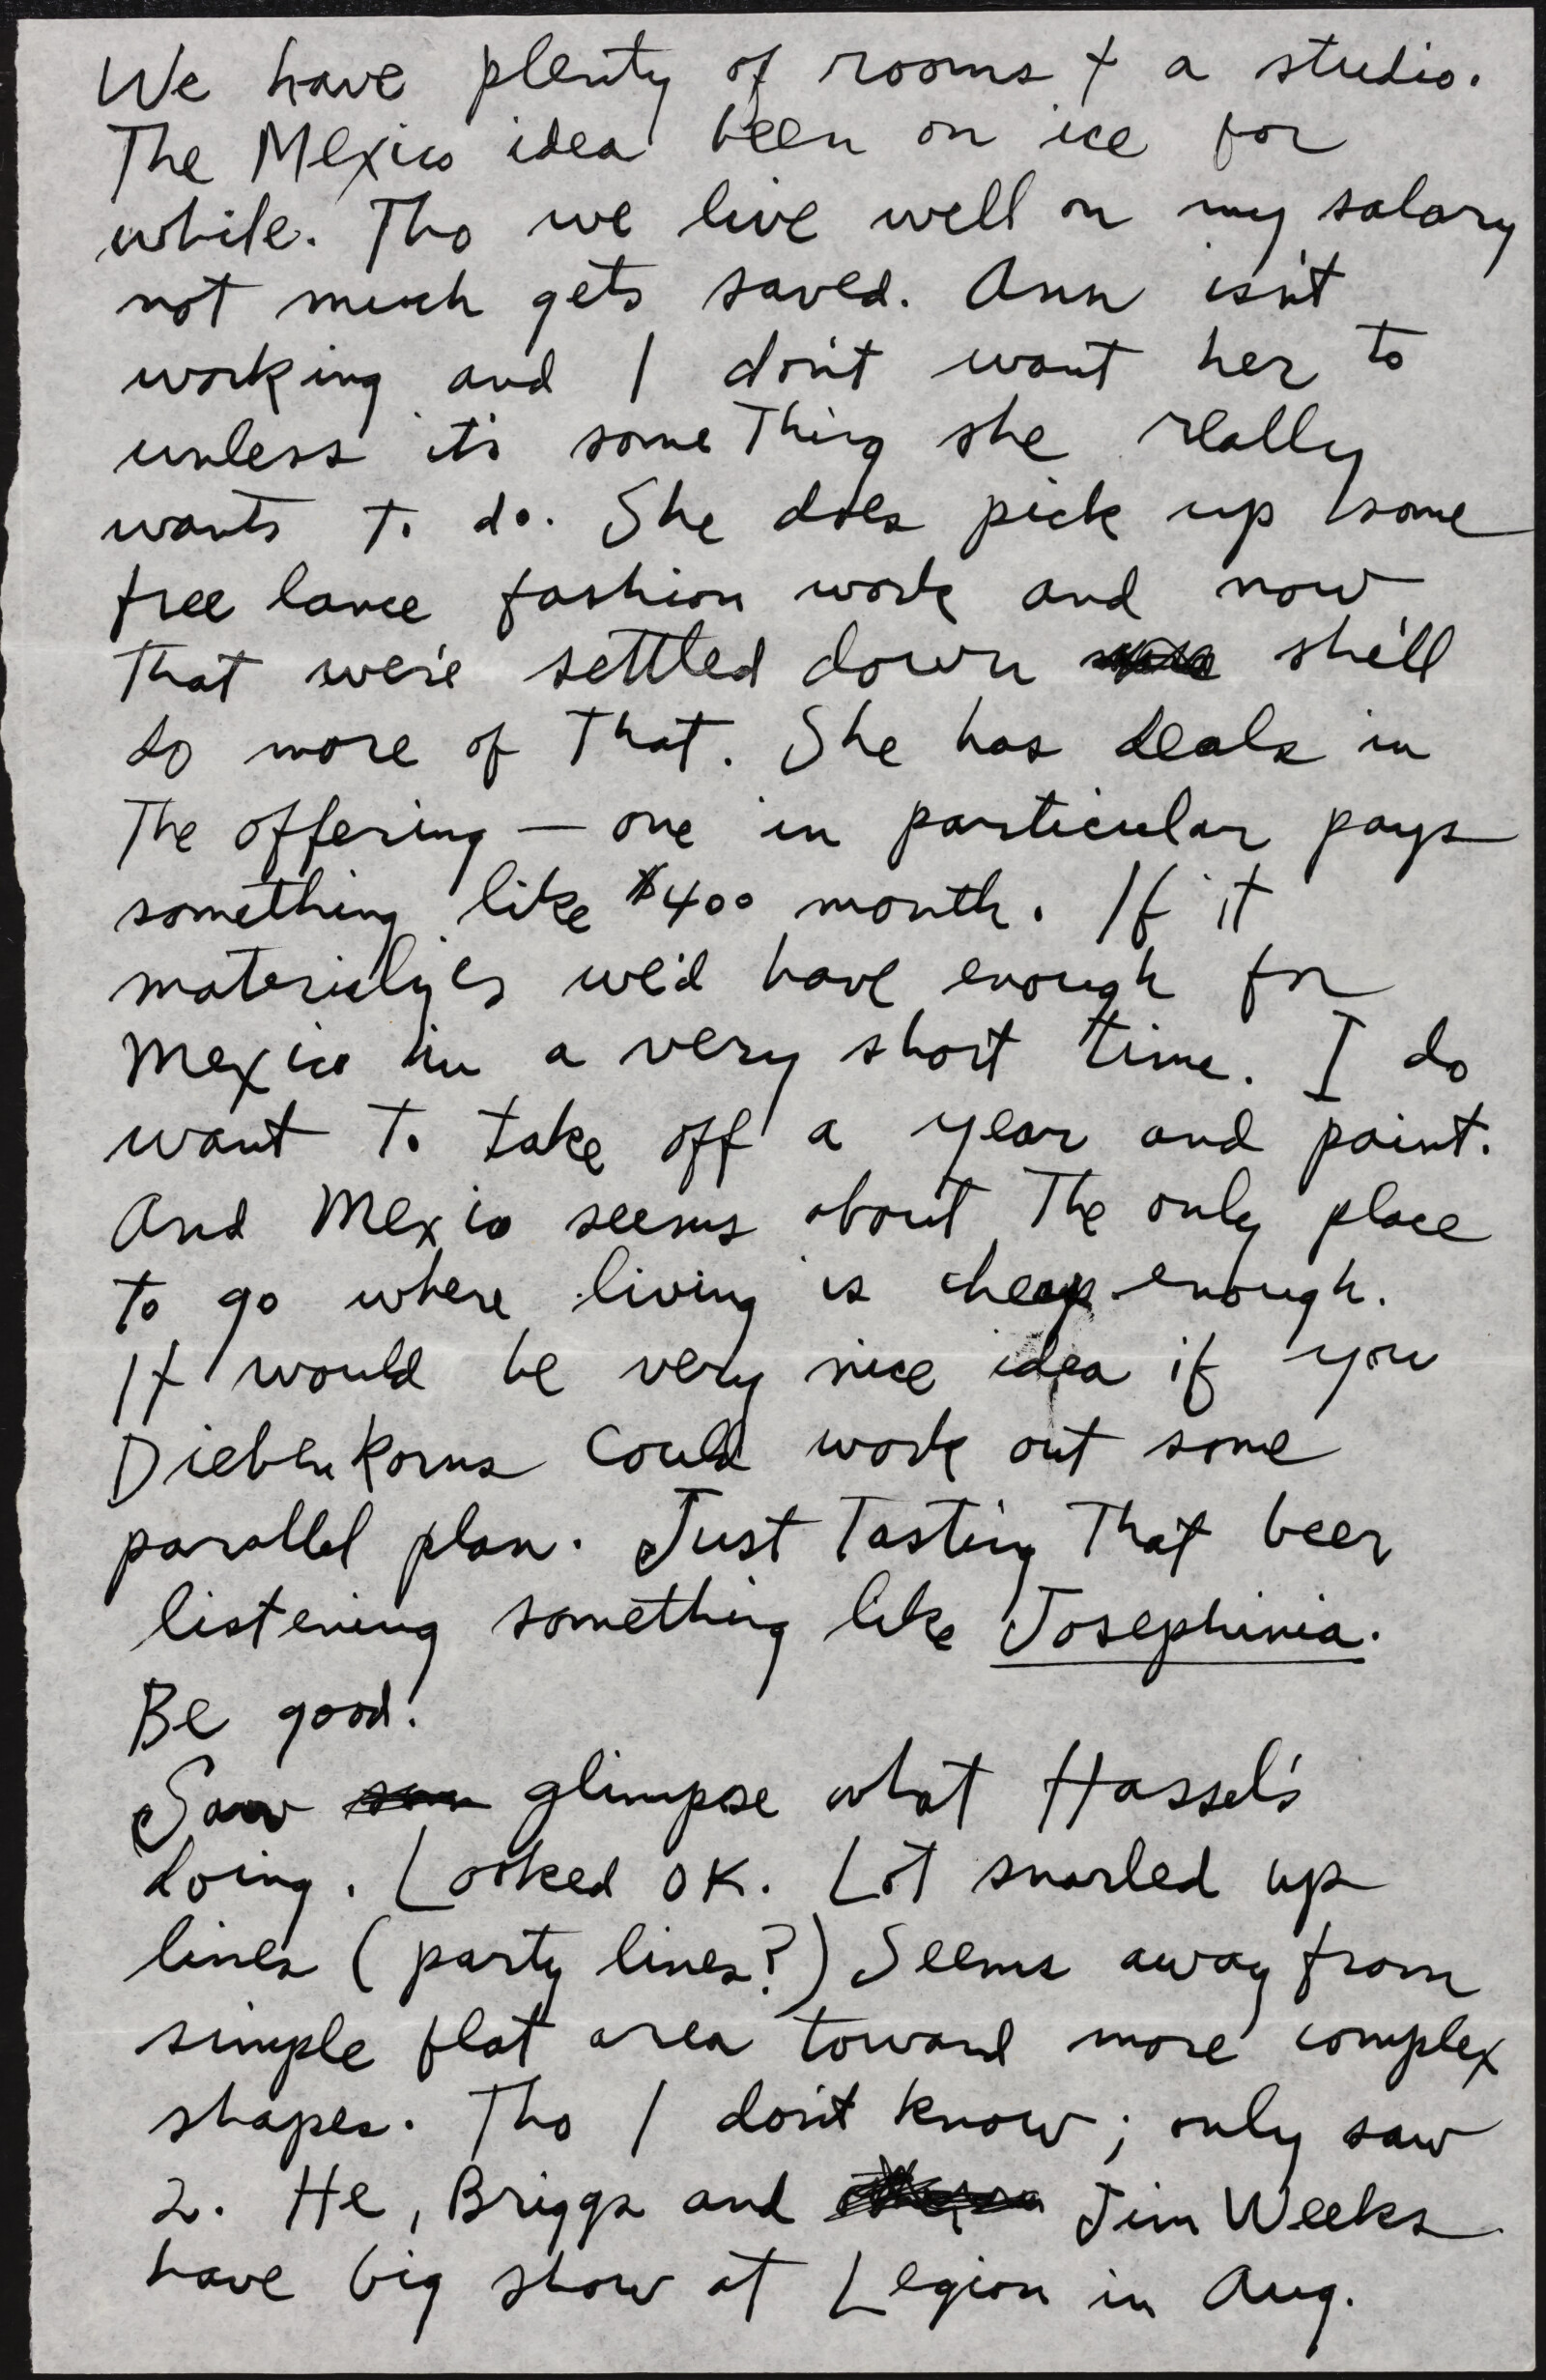 We have plenty of rooms + a studio.
The Mexico idea been on ice for
while. Tho we live well on my salary
not much gets saved. Ann isn't
working and I don't want her to
unless it's some Thing she really
wants to do. She does pick up some
free lance fashion work and now
that we're settled down she'll
do more of That. She has deals in
The offering — one in particular pays
something like $400 month. If it
materializes we'd have enough for
Mexico in a very short time. I do
want to take off a year and paint.
And Mexico seems about The only place
to go where living is cheap enough.
It would be very nice idea if you
Diebenkorns could work out some
parallel plan. Just Tasting That beer
listening something like Josephinia.
Be good.
Saw glimpse what Hassel's
doing. Looked OK. Lot snarled up
lines (party lines?) Seems away from
simple flat area toward more complex
shapes. Tho I don't know; only saw
2. He, Briggs and Jim Weeks
have big show at Legion in Aug.